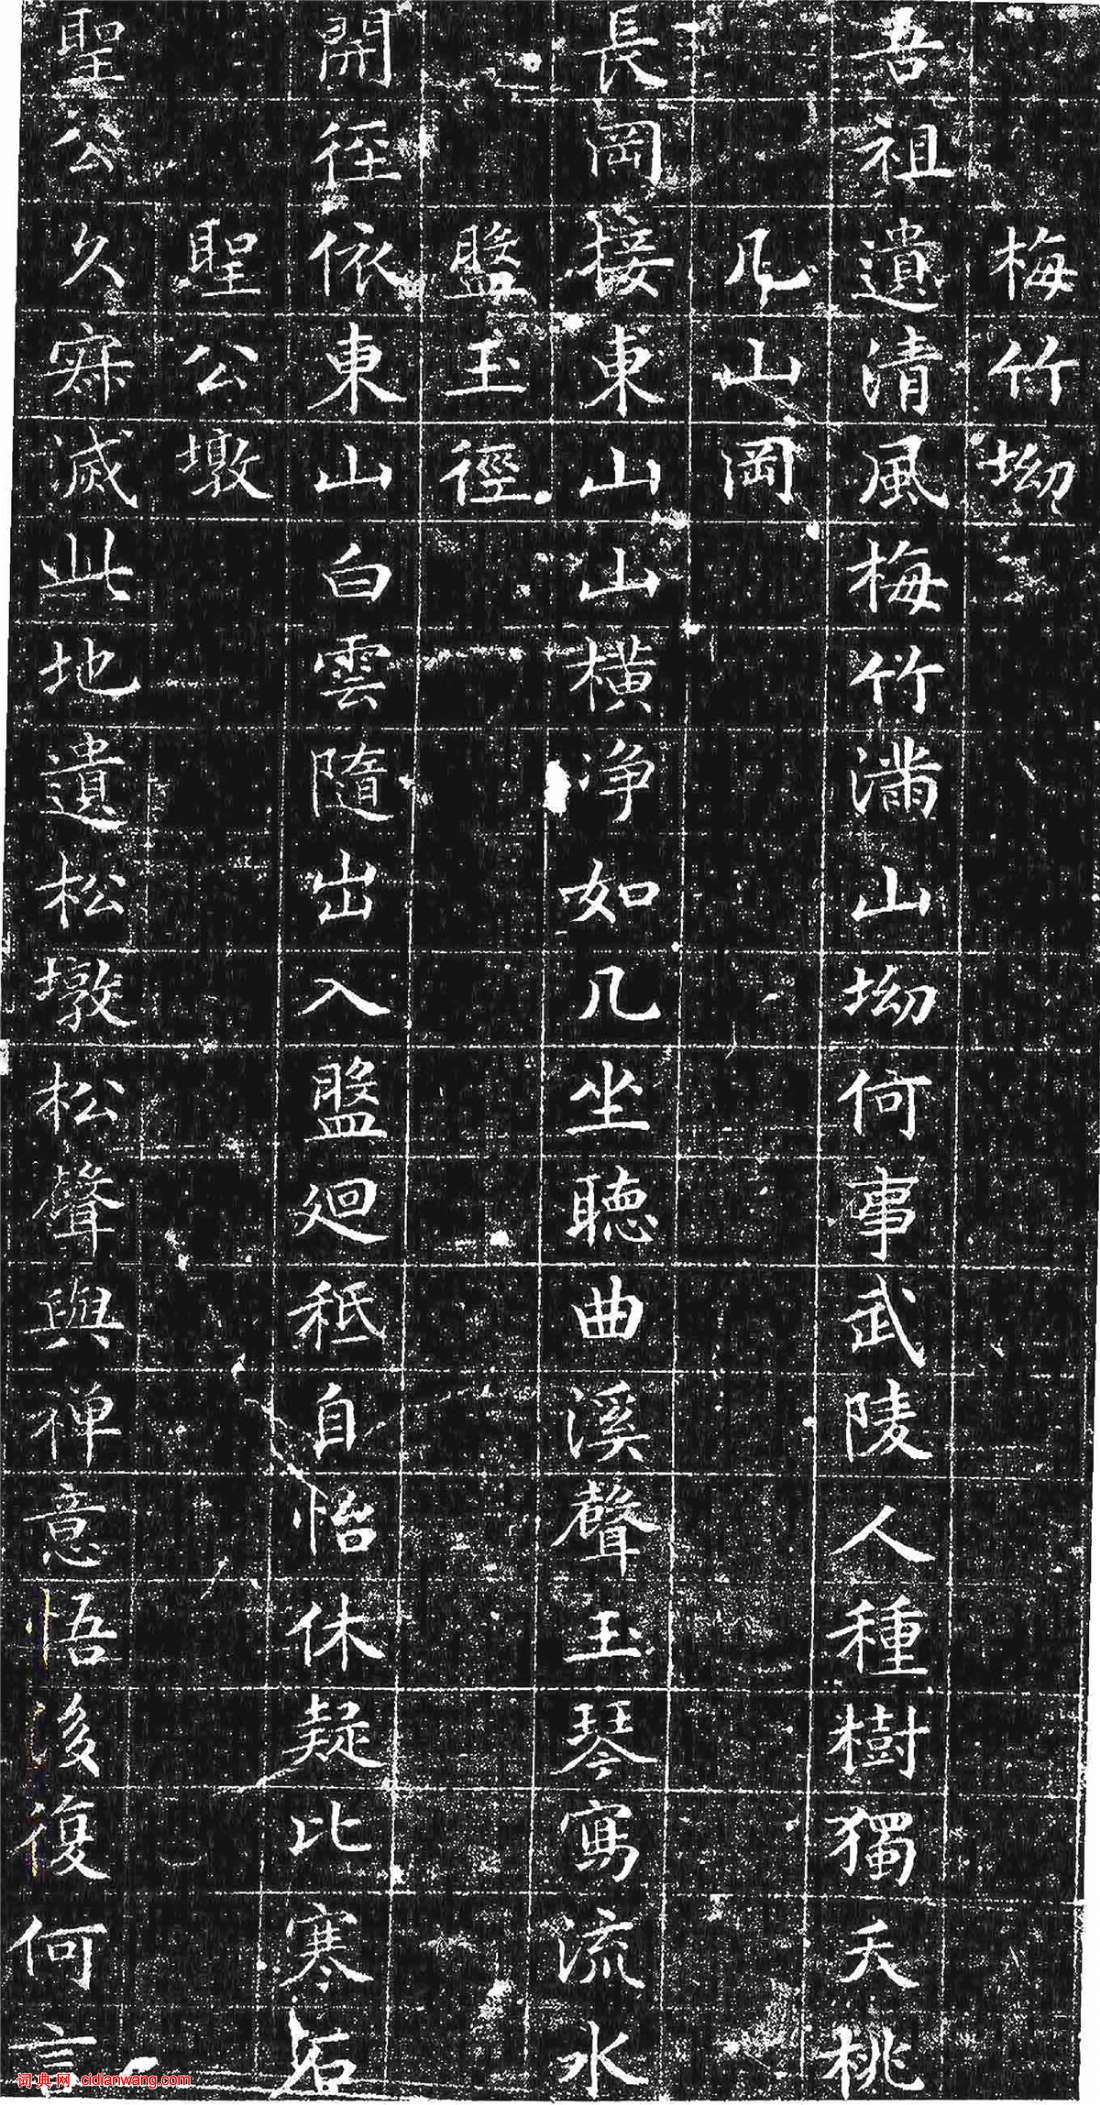 梅竹坳
吾祖遺清風梅竹滿山坳何事武陵人種樹獨夭桃
几山岡
長岡接東山山橫净如几坐聽曲溪聲玉琴寫流水
盤玉徑
開徑依東山白雲隨出入盤迴秖自怡休疑比寒石
聖公墩
聖公久寂滅此地遺松墩松聲與禅意悟後復何言
词典网 cidianwang.com